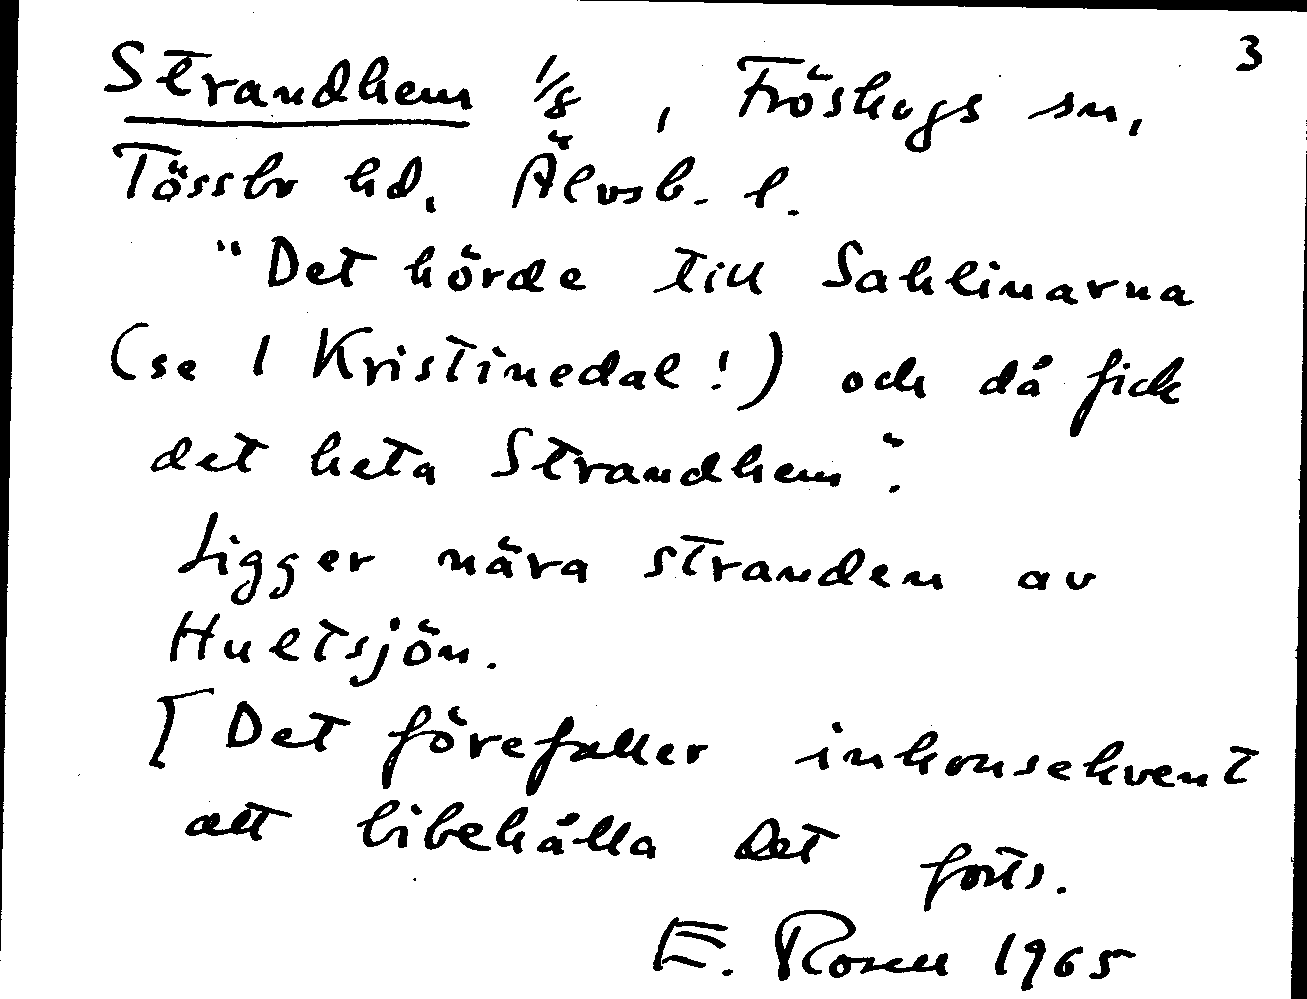 3
Strandhem 1/8, Fröskogs sn,
Tössbo hd. Älvsb. l.
"Det hörde till Sahlinarna
(se 1 Kristinedal!) och då fick
det heta Strandhem".
Ligger nära stranden av
Hultsjön.
[Det förefaller inkonsekvent
att bibehålla det forts.
E. Rosell 1965